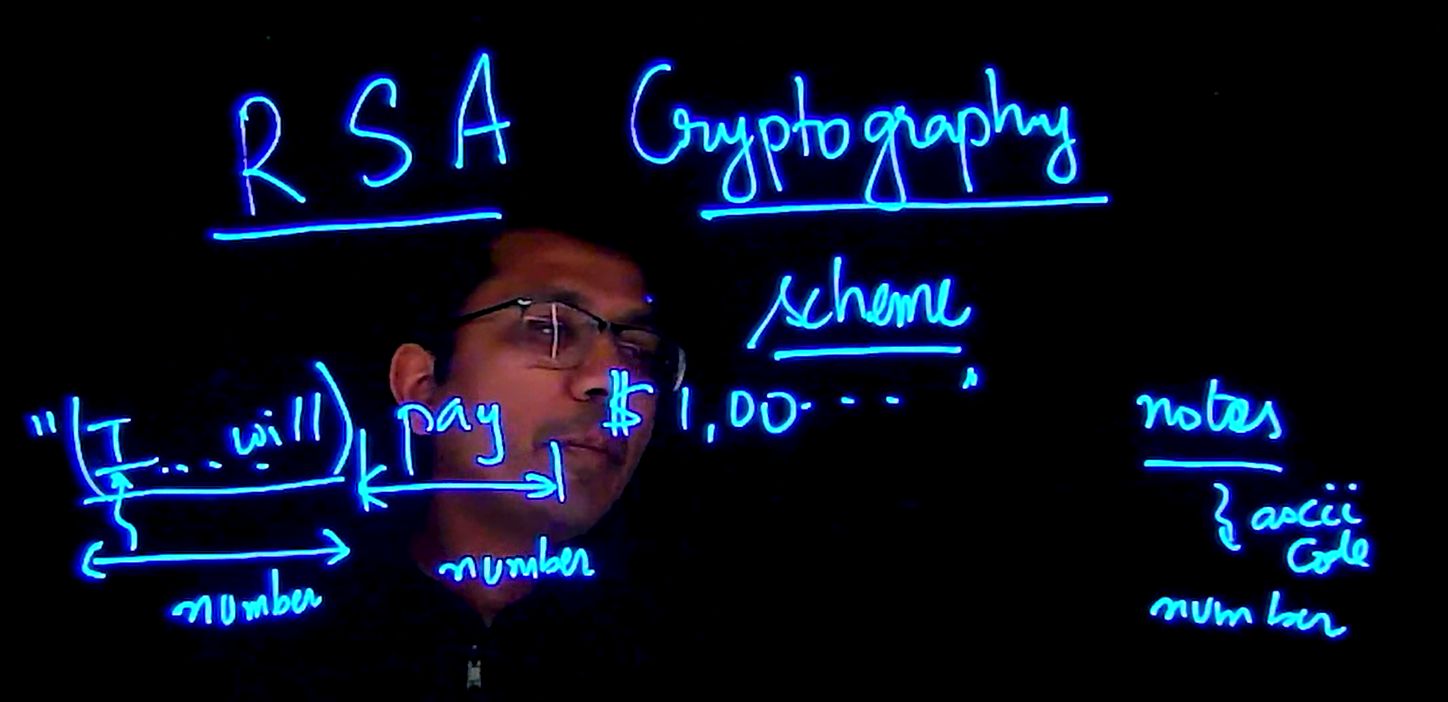 RSA Cryptography
scheme
"(I.... will) pay $ 1,00. . . . "
number
number
notes
} ascii
code
number